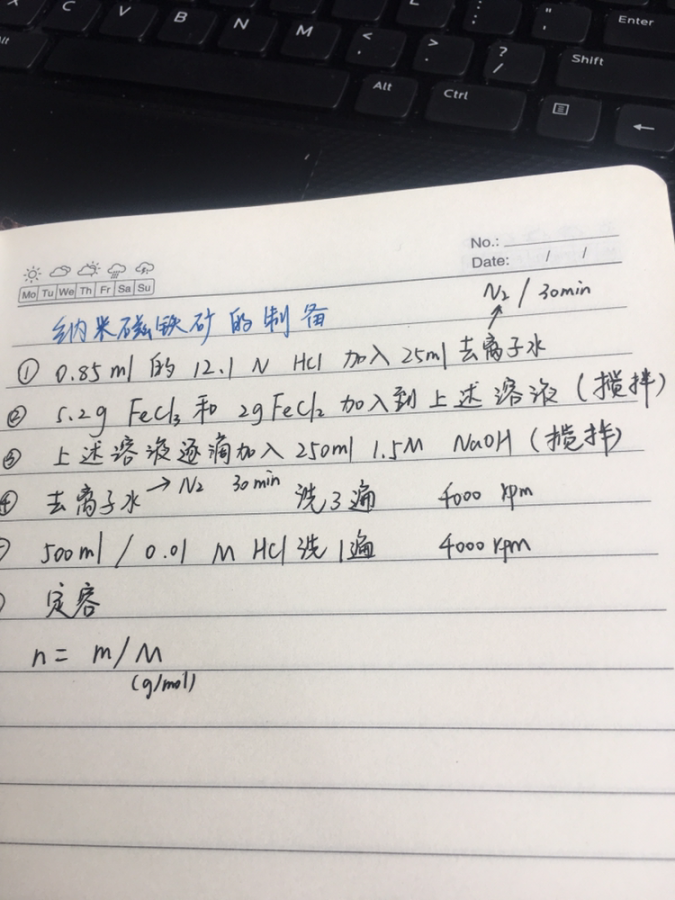 X C V B N M < , > . ? / : ; " ' Enter
Alt Ctrl Shift
No.:
Date: / /
Mo Tu We Th Fr Sa Su
N₂ / 30min
纳米磁铁矿的制备
① 0.85ml 的 12.1 N HCl 加入 25ml 去离子水
② 5.2g FeCl₃ 和 2g FeCl₂ 加入到上述溶液(搅拌)
③ 上述溶液逐滴加入 250ml 1.5M NaOH(搅拌)
④ 去离子水 → N₂ 30min 洗3遍 4000 rpm
500ml / 0.01 M HCl 洗1遍 4000rpm
定容
n = m/M
(g/mol)